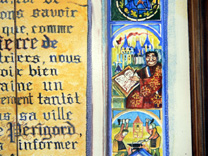 ous savoir
que, comme
ierre de
triers, nous
oir bien
aine un
ement tantôt
us sa ville
Périgord,
s informer